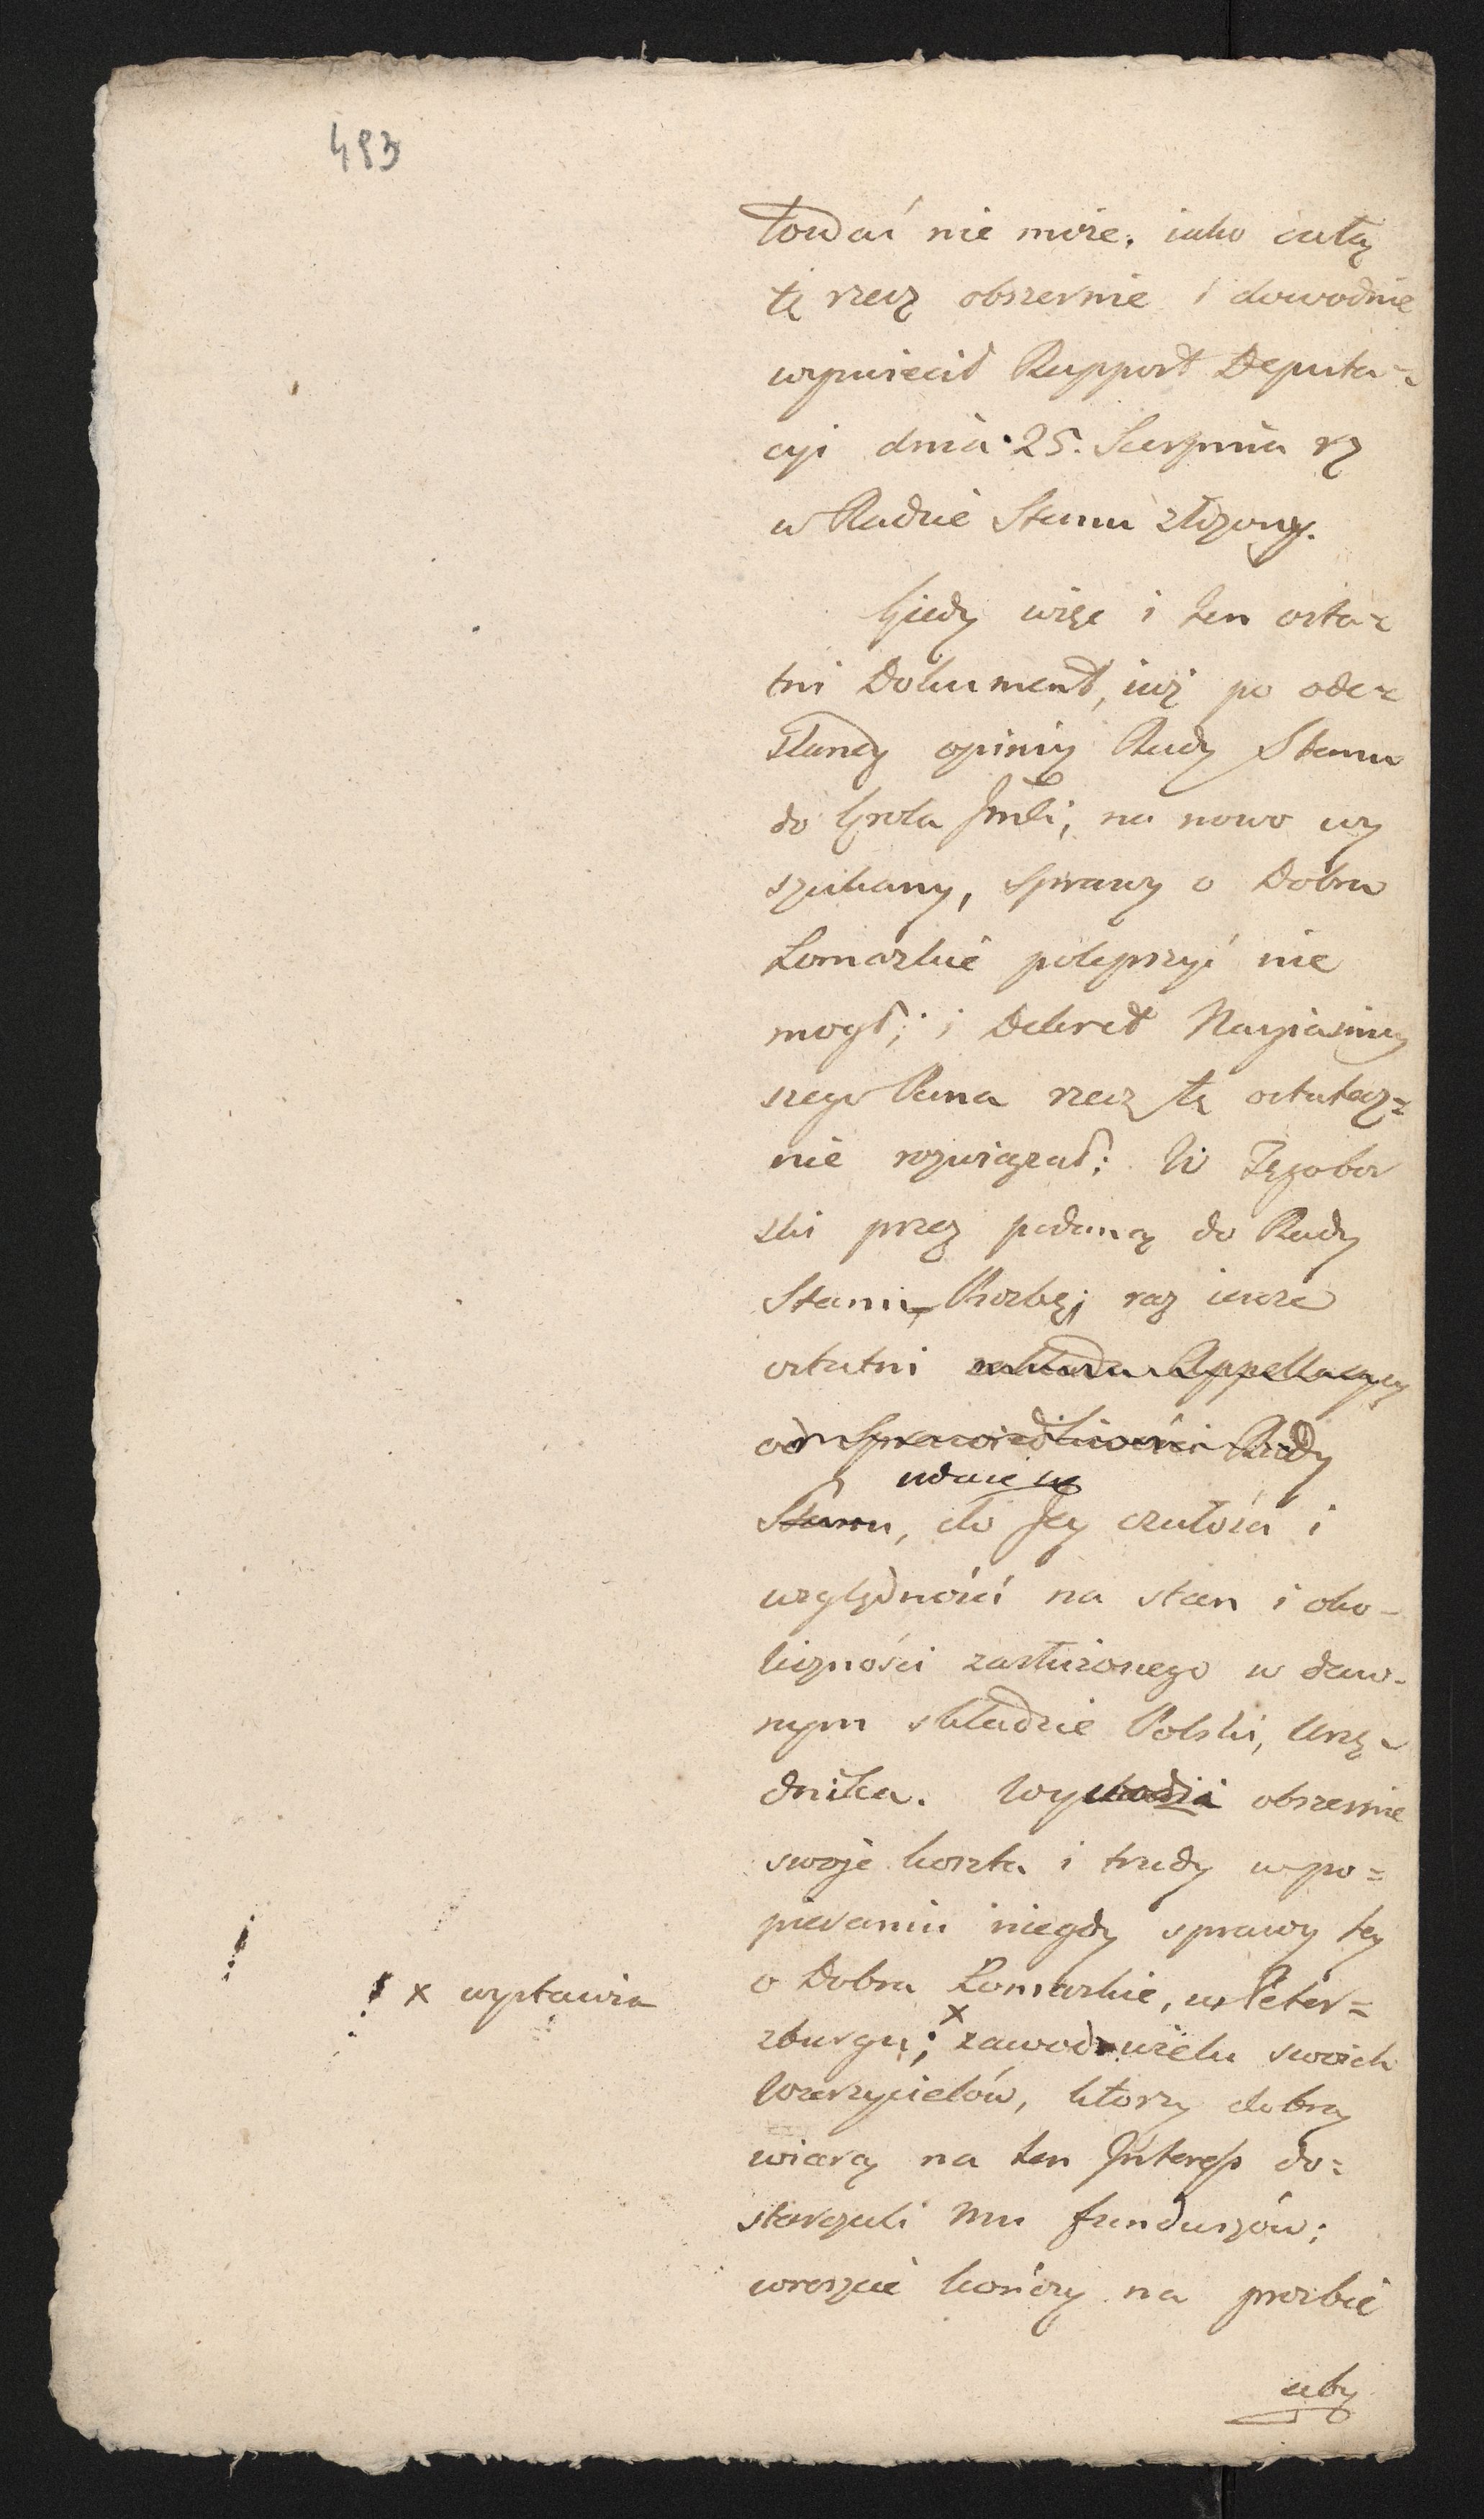 483
łowdać nie może. iako całą
tę rzecz obszernie i dowodnie
wyświecił Rapport Deputa=
cyi dnia 25. Sierpnia r z
w Radzie Stanu złożony.
Gdy więc i ten osta=
tni Dokument, iuż po ode=
słaney opinii Rady Stanu
do Króla Jmći, na nowo wy
szukany, sprawy o Dobra
Łomazkie polepszyć nie
mogł; i Dekret Nayiasniey
szego Pana rzecz tę ostatecz=
nie rozwiązał: W
ski przez podaną do Rady
Stanu Prozbę; raz ieszcze
ostatni zakłada Appellacyą
od Sprawiedliwości Rady
udaie się
Stanu, do Jey czułości i
względności na stan i oko-
liczności zasłużonego w daw-
nym składzie Polski, Urzę-
dnika. Wywodzi obszernie
swoje koszta i trudy w po=
pieraniu niegdy sprawy tey
o Dobra Łomazkie, w Peter=
x
zburgu; zawod wielu swoich
! ! x wystawia
Wierzycielów, ktorzy dobrą
wiarą na ten Interess do=
starczali mu funduszów;
wreszcie kończy na prozbie
aby